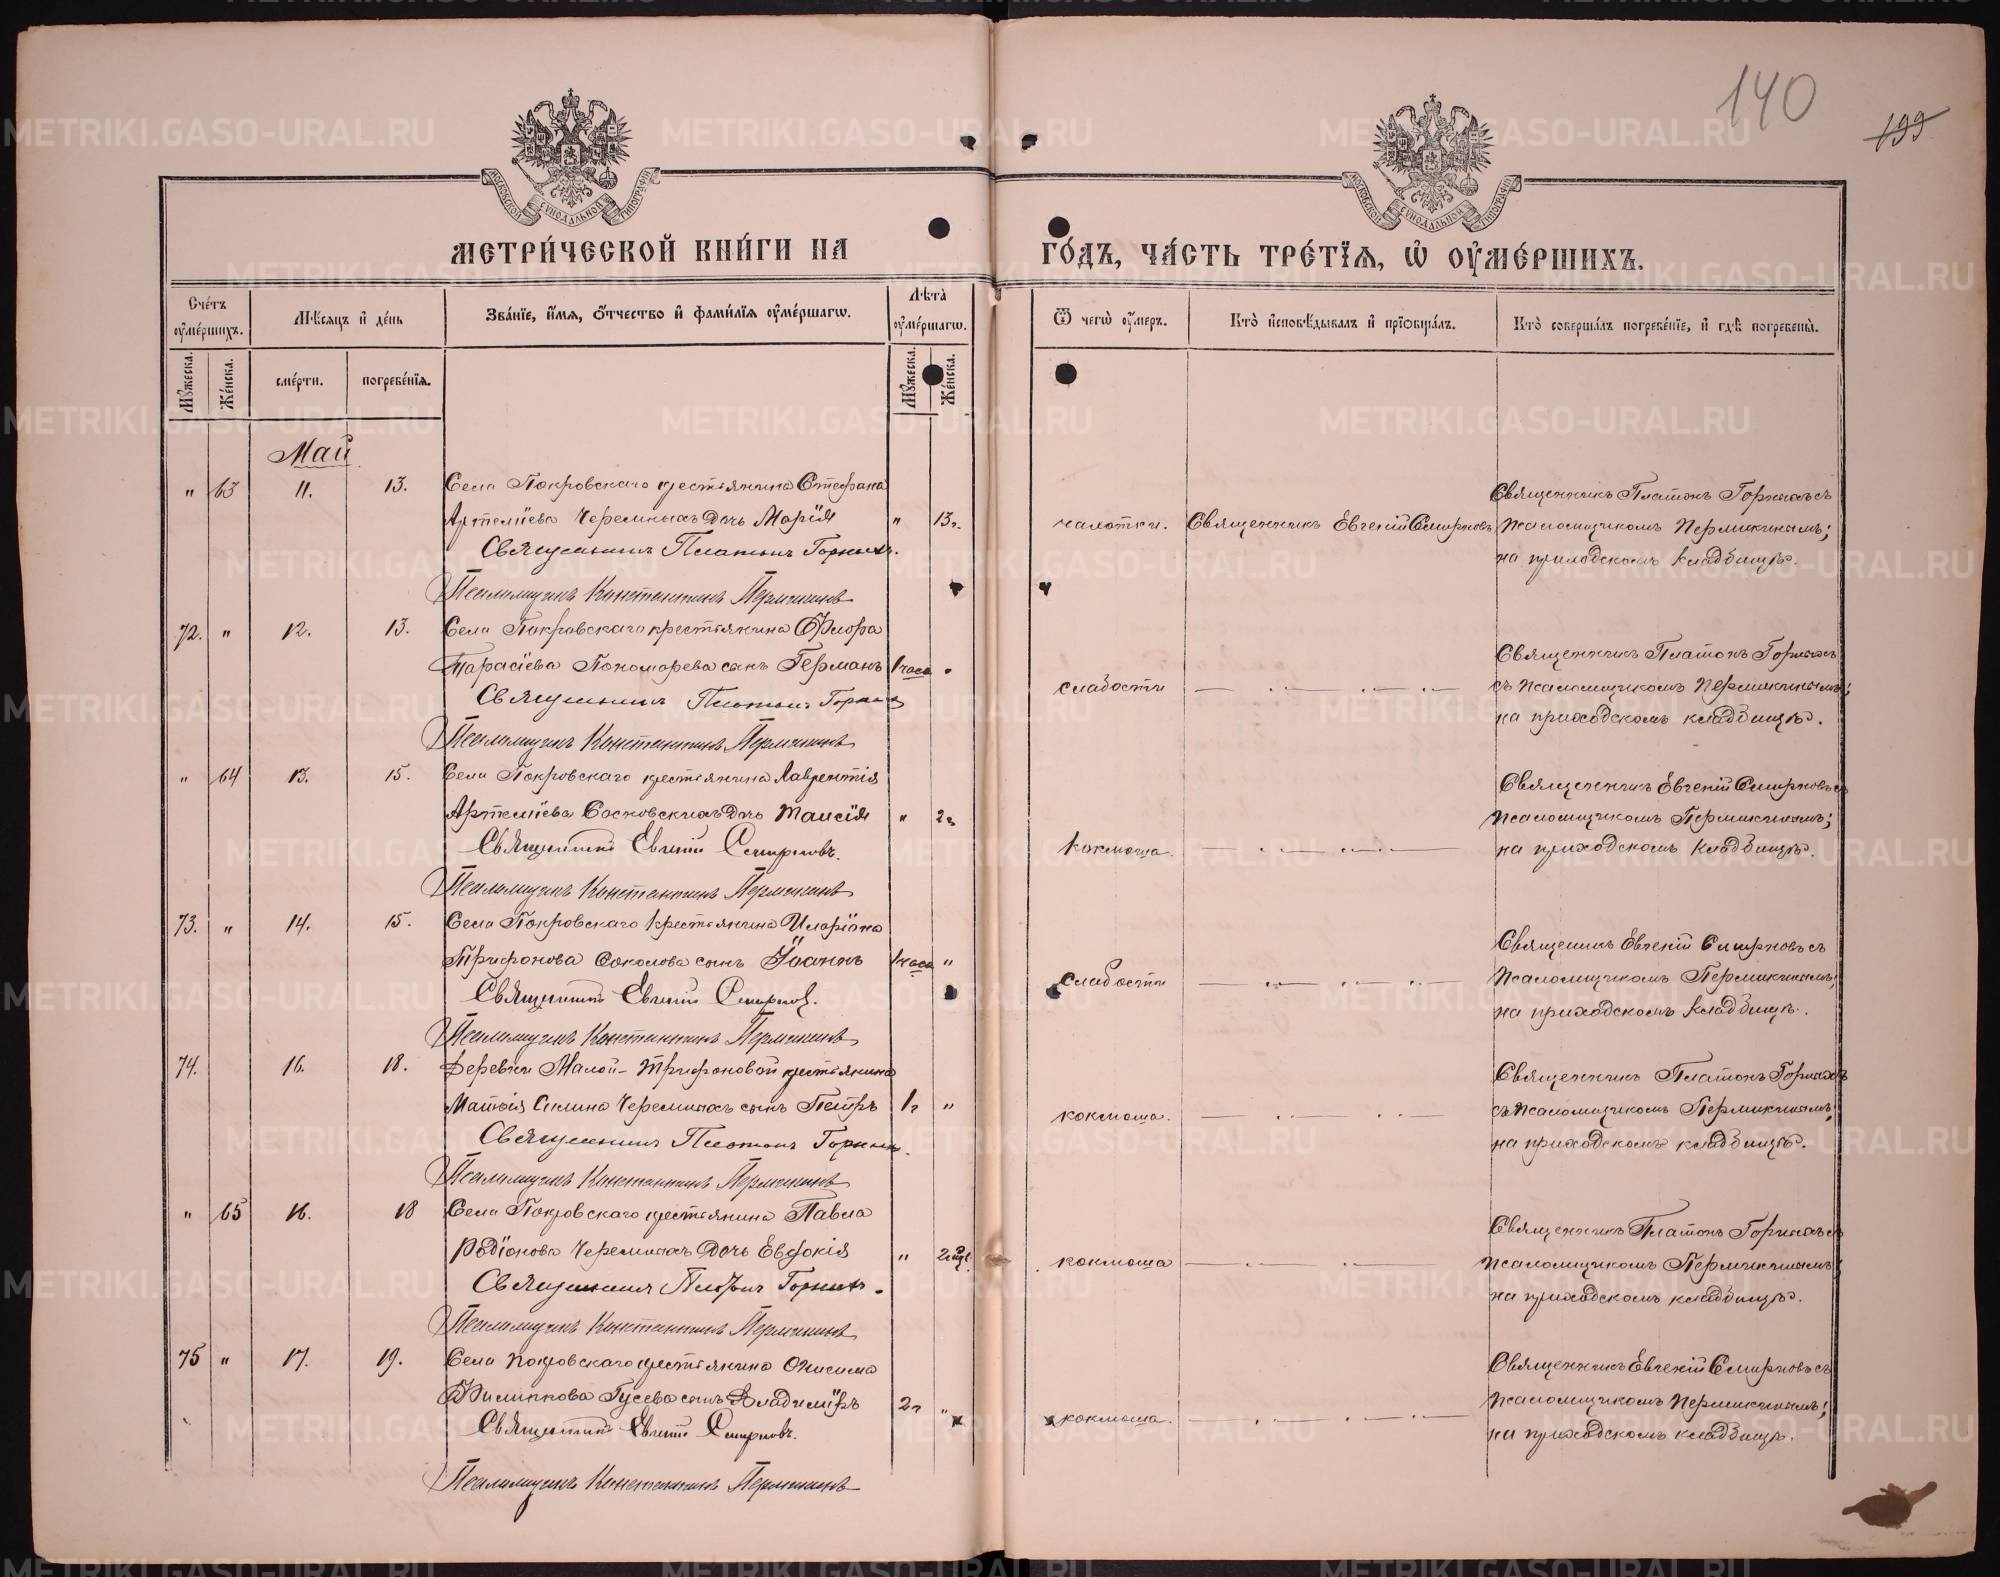 140
199
МОСКОВСКОЙ СѴНОДАЛЬНОЙ ТИПОГРАФІИ
МОСКОВСКОЙ СѴНОДАЛЬНОЙ ТИПОГРАФІИ
МЕТРИ́ЧЕСКОЙ КНИ́ГИ НА ГО́ДЪ, ЧА́СТЬ ТРЕ́ТЇѦ, Ѡ҆ ОУ҆МЕ́РШИХЪ.
Счетъ оумершихъ.
Мѣсяцъ и день
Званїе, имя, отчество и фамилїя оумершагѡ.
Лѣта оумершагѡ.
Ѿ чегѡ оумеръ.
Кто исповѣдывалъ и прїобщалъ.
Кто совершалъ погребенїе, и гдѣ погребены.
Мужеска.
Женска.
смерти.
погребенїя.
Мужеска.
Женска.
Май
" 63 11. 13. Села Покровскаго крестьянина Стефана
Артемiева Черемныхъ дочь Марія " 13г. чахотки. Священникъ Евгеній Смирновъ
Священникъ Платонъ Горныхъ съ
псаломщикомъ Пермикинымъ;
на приходскомъ кладбищѣ.
Священникъ Платонъ Горныхъ.
Псаломщикъ Константинъ Пермикинъ
72. " 12. 13. Села Покровскаго крестьянина Флора
Тарасіева Пономарева сынъ Германъ 1 часа " слабости
Священникъ Платонъ Горныхъ
съ псаломщикомъ Пермикинымъ;
на приходскомъ кладбищѣ.
Священникъ Платонъ Горныхъ
Псаломщикъ Константинъ Пермикинъ
" 64 13. 15. Села Покровскаго крестьянина Лаврентія
Артеміева Сосновскихъ дочь Таисія " 2г. кокмоша.
Священникъ Евгеній Смирновъ съ
псаломщикомъ Пермикинымъ;
на приходскомъ кладбищѣ.
Священникъ Евгеній Смирновъ.
Псаломщикъ Константинъ Пермикинъ
73. " 14. 15. Села Покровскаго крестьянина Иларіона
Трифонова Соколова сынъ Іоаннъ 1 часа " слабости
Священникъ Евгеній Смирновъ съ
псаломщикомъ Пермикинымъ;
на приходскомъ кладбищѣ.
Священникъ Евгеній Смирновъ.
Псаломщикъ Константинъ Пермикинъ
74. 16. 18. Деревни Малой-Трифоновой крестьянина
Матѳія Силина Черемныхъ сынъ Петръ 1г " кокмоша.
Священникъ Платонъ Горныхъ
съ псаломщикомъ Пермикинымъ;
на приходскомъ кладбищѣ.
Священникъ Платонъ Горныхъ.
Псаломщикъ Константинъ Пермикинъ
" 65 16. 18 Села Покровскаго крестьянина Павла
Родіонова Черемныхъ дочь Евдокія " 2 мѣс. кокмоша
Священникъ Платонъ Горныхъ съ
псаломщикомъ Пермикинымъ;
на приходскомъ кладбищѣ.
Священникъ Платонъ Горныхъ.
Псаломщикъ Константинъ Пермикинъ
75 " 17. 19. Села Покровскаго крестьянина Онисима
Филиппова Гусева сынъ Владиміръ 2г " кокмоша.
Священникъ Евгеній Смирновъ съ
псаломщикомъ Пермикинымъ;
на приходскомъ кладбищѣ.
Священникъ Евгеній Смирновъ.
Псаломщикъ Константинъ Пермикинъ
METRIKI.GASO-URAL.RU